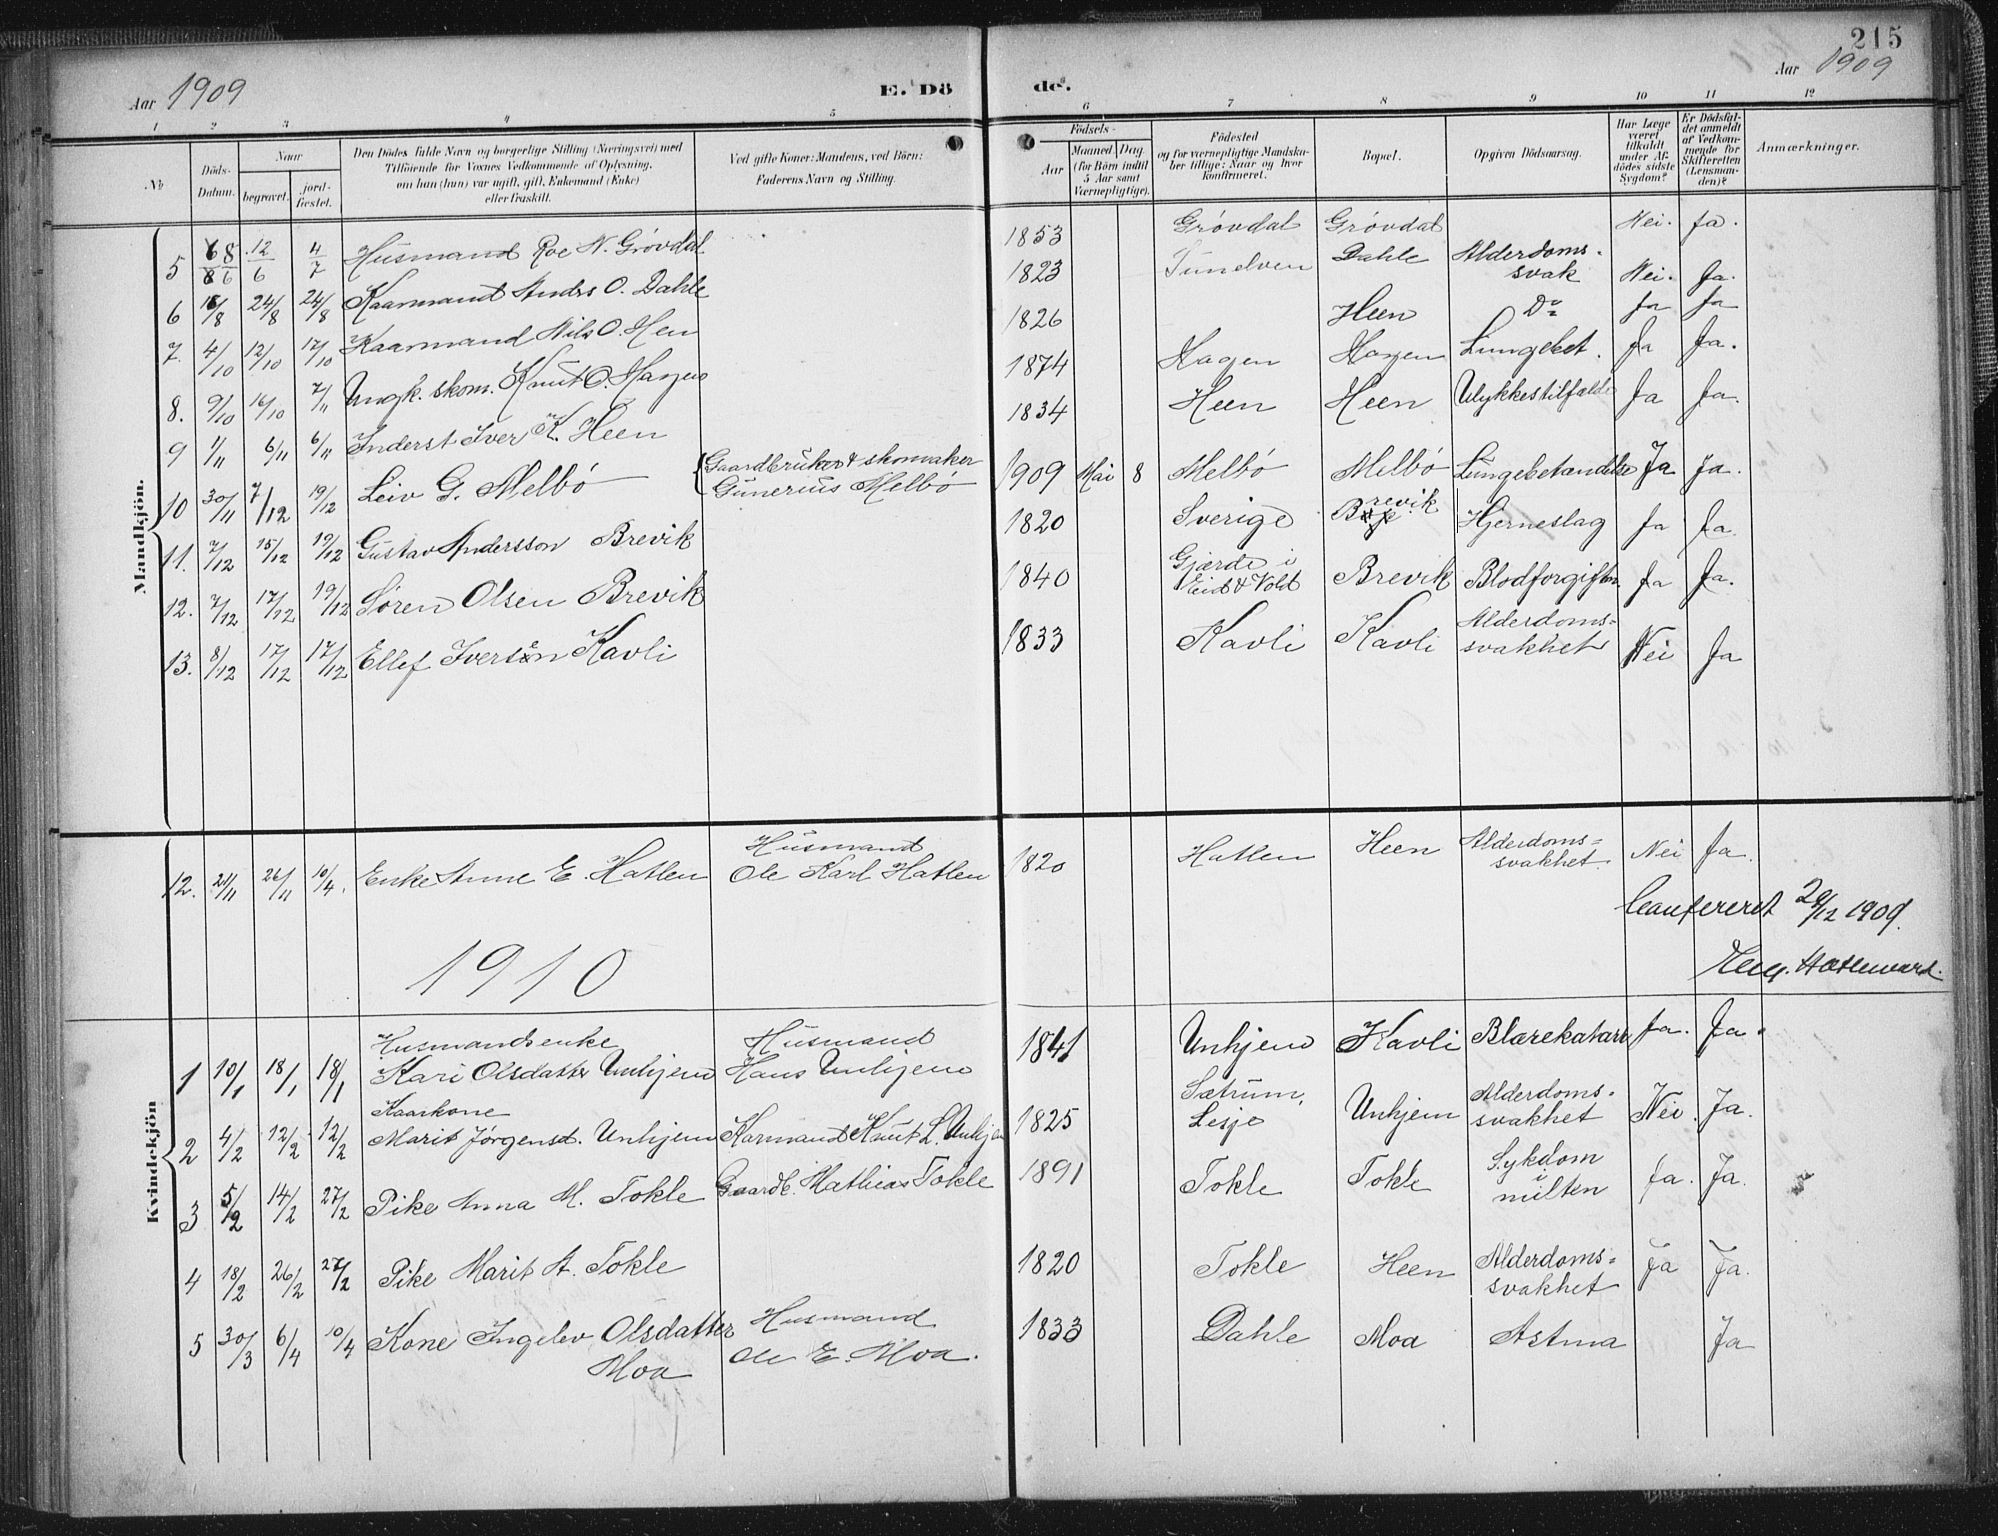 215
Aar 1909
E. Dö
de.
Aar 1909
1 2 3 4 5 6 7 8 9 10 11 12
No
Döds-Datum.
Naar
begravet.
jord-fæstet.
Den Dödes fulde Navn og borgerlige Stilling (Næringsvei) med
Tilföiende for Voxnes Vedkommende af Oplysning,
om han (hun) var ugift, gift, Enkemand (Enke)
eller fraskilt.
Ved gifte Koner: Mandens, ved Börn:
Faderens Navn og Stilling.
Födsels-
Aar
Maaned. Dag.
(for Börn indtil
5 Aar samt
Værnepligtige).
Födested
og for værnepligtige Mandska-
ber tillige: Naar og hvor
konfirmeret.
Bopæl.
Opgiven Dödsaarsag.
Har Læge
været
tilkaldt
under Af-
dödes sidste
Sygdom?
Er Dödsfal-
det anmeldt
af Vedkom-
mende for
Skifteretten
(Lensman-
den)?
Anmærkninger.
Mandkjön.
5 12/6 4/7 Husmand Roe N. Grövdal 1853 Grövdal Grövdal Nei. Ja.
6 /8 24/8 24/8 Kaarmand Andrs O. Dahle 1823 Dahle Alderdoms-
svak Nei. Ja.
7. 4/10 12/10 17/10 Kaarmand Nils O. Hen 1826 Heen Do Ja Ja
8. 9/10 16/10 7/11 Ungk. skom. Knut O. Hagen 1874 Hagen Hagen Lungebet. Ja Ja.
9 1/11 6/11 6/11 Inderst Iver K. Heen 1834 Heen Heen Ulykkestilfælde Ja Ja.
10 30/11 7/12 19/12 Leiv G. Melbö Gaardbruker & skomaker
Gunerius Melbö 1909 Mai 8 Melbö Melbö Lungebetændelse Ja Ja.
11. 7/12 15/12 19/12 Gustav Andersson Brevik 1820 Sverige Brevik Hjerneslag Ja Ja.
12. 7/12 17/12 19/12 Sören Olsen Brevik 1840 Gjærde i
Eid & Vold Brevik Blodforgiftn. Ja Ja.
13. 8/12 17/12 17/12 Ellef Iversen Kavli 1833 Kavli Kavli Alderdoms-
svakhet Nei Ja
12. 21/11 26/11 10/4. Enke Anne E. Hatlen Husmand
Ole Karl Hatlen 1820 Hatlen Heen Alderdoms-
svakhet. Nei Ja.
Confereret 29/12 1909.
1910
Kvindekjön
1 10/1 18/1 18/1 Husmandsenke
Kari Olsdatter Unhjem Husmand
Hans Unhjem 1841 Unhjem Kavli Blærekatarr Ja. Ja.
2 4/2 12/2 12/2 Kaarkone
Marit Jörgensd. Unhjem Karmand Knut L. Unhjem 1825 Sætrum,
Lesje Unhjem Alderdoms-
svakhet Nei. Ja.
3 5/2 14/2 27/2 Pike Anna M. Tokle Gaardb. Mathias Tokle 1891 Tokle Tokle Sykdom
i
milten Ja. Ja.
4 18/2 26/2 27/2 Pike Marit A. Tokle 1820 Tokle Heen Alderdoms-
svakhet Ja Ja.
5 30/3 6/4 10/4 Kone Ingelev Olsdatter
Moa Husmand
Ole E. Moa. 1833 Dahle Moa Astma Ja